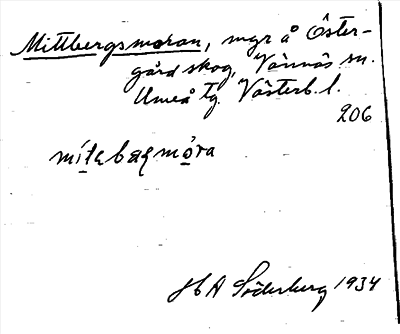 Mittbergsmoran, myr å Öster-
gård skog, Vännäs sn.
Umeå tg. Västerb. l.
206
H A Söderberg 1934